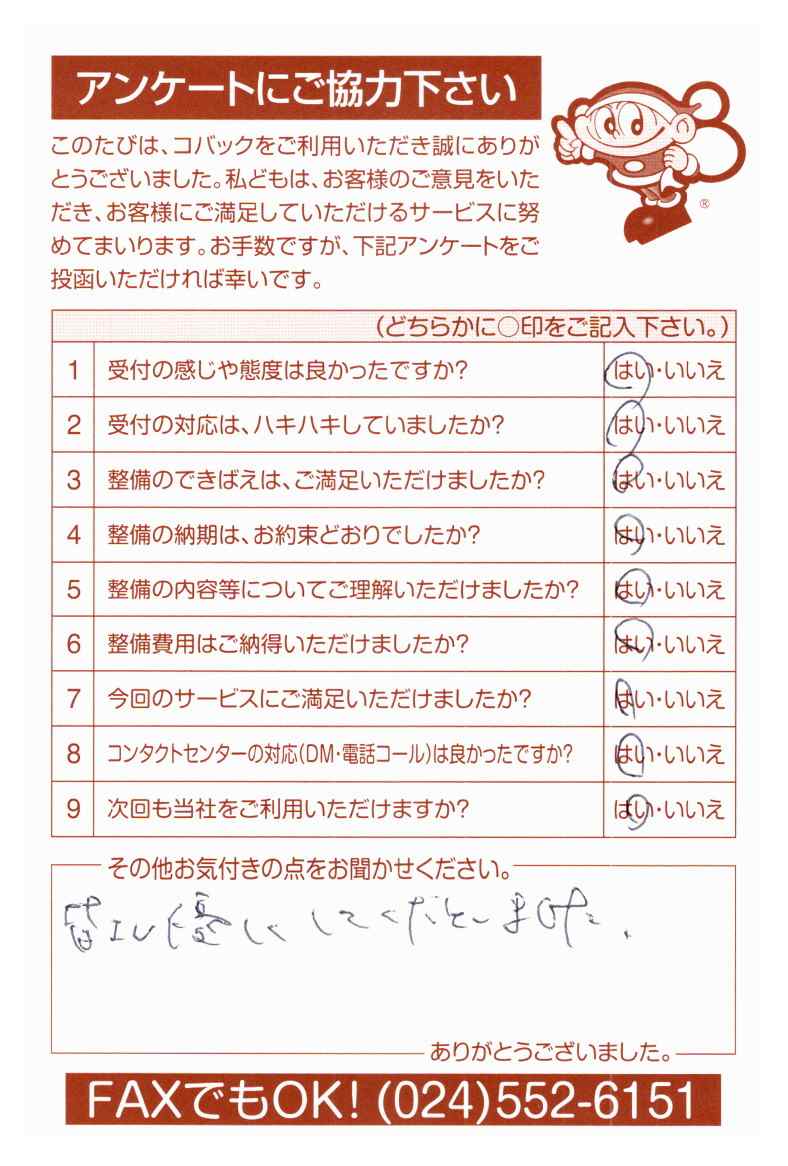 アンケートにご協力下さい
このたびは、コバックをご利用いただき誠にありが
とうございました。私どもは、お客様のご意見をいた
だき、お客様にご満足していただけるサービスに努
めてまいります。お手数ですが、下記アンケートをご
投函いただければ幸いです。
®
(どちらかに○印をご記入下さい。)
1 受付の感じや態度は良かったですか? はい・いいえ
2 受付の対応は、ハキハキしていましたか? はい・いいえ
3 整備のできばえは、ご満足いただけましたか? はい・いいえ
4 整備の納期は、お約束どおりでしたか? はい・いいえ
5 整備の内容等についてご理解いただけましたか? はい・いいえ
6 整備費用はご納得いただけましたか? はい・いいえ
7 今回のサービスにご満足いただけましたか? はい・いいえ
8 コンタクトセンターの対応(DM・電話コール)は良かったですか? はい・いいえ
9 次回も当社をご利用いただけますか? はい・いいえ
その他お気付きの点をお聞かせください。
優しくしてくださいました。
ありがとうございました。
FAXでもOK! (024)552-6151